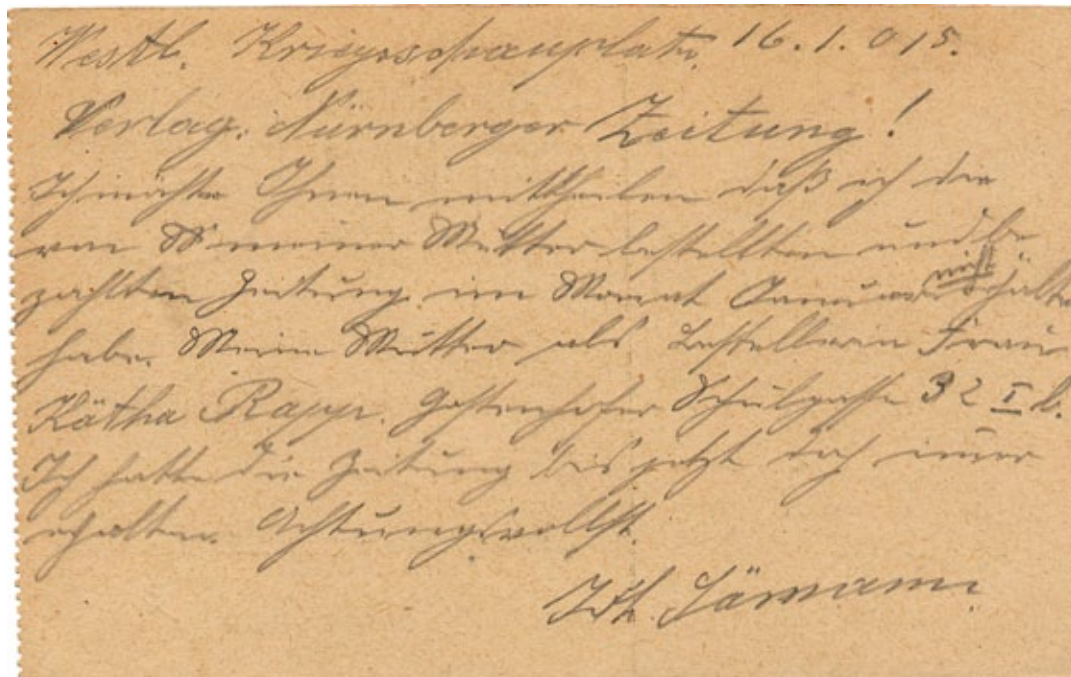 Westl. Kriegsschauplatz, 16.1.015.
Verlag. Nürnberger Zeitung!
Ich möchte Ihnen mittheilen daß ich die
von meiner Mutter bestellten und be
zahlten Zeitung im Monat Januar nicht erhalten
habe. Meine Mutter als Bestellerin Frau
Kätha Rapp. Gostenhofer Schulgasse 32 I l.
Ich hatte die Zeitung bis jetzt doch immer
erhalten. Achtungsvollst.